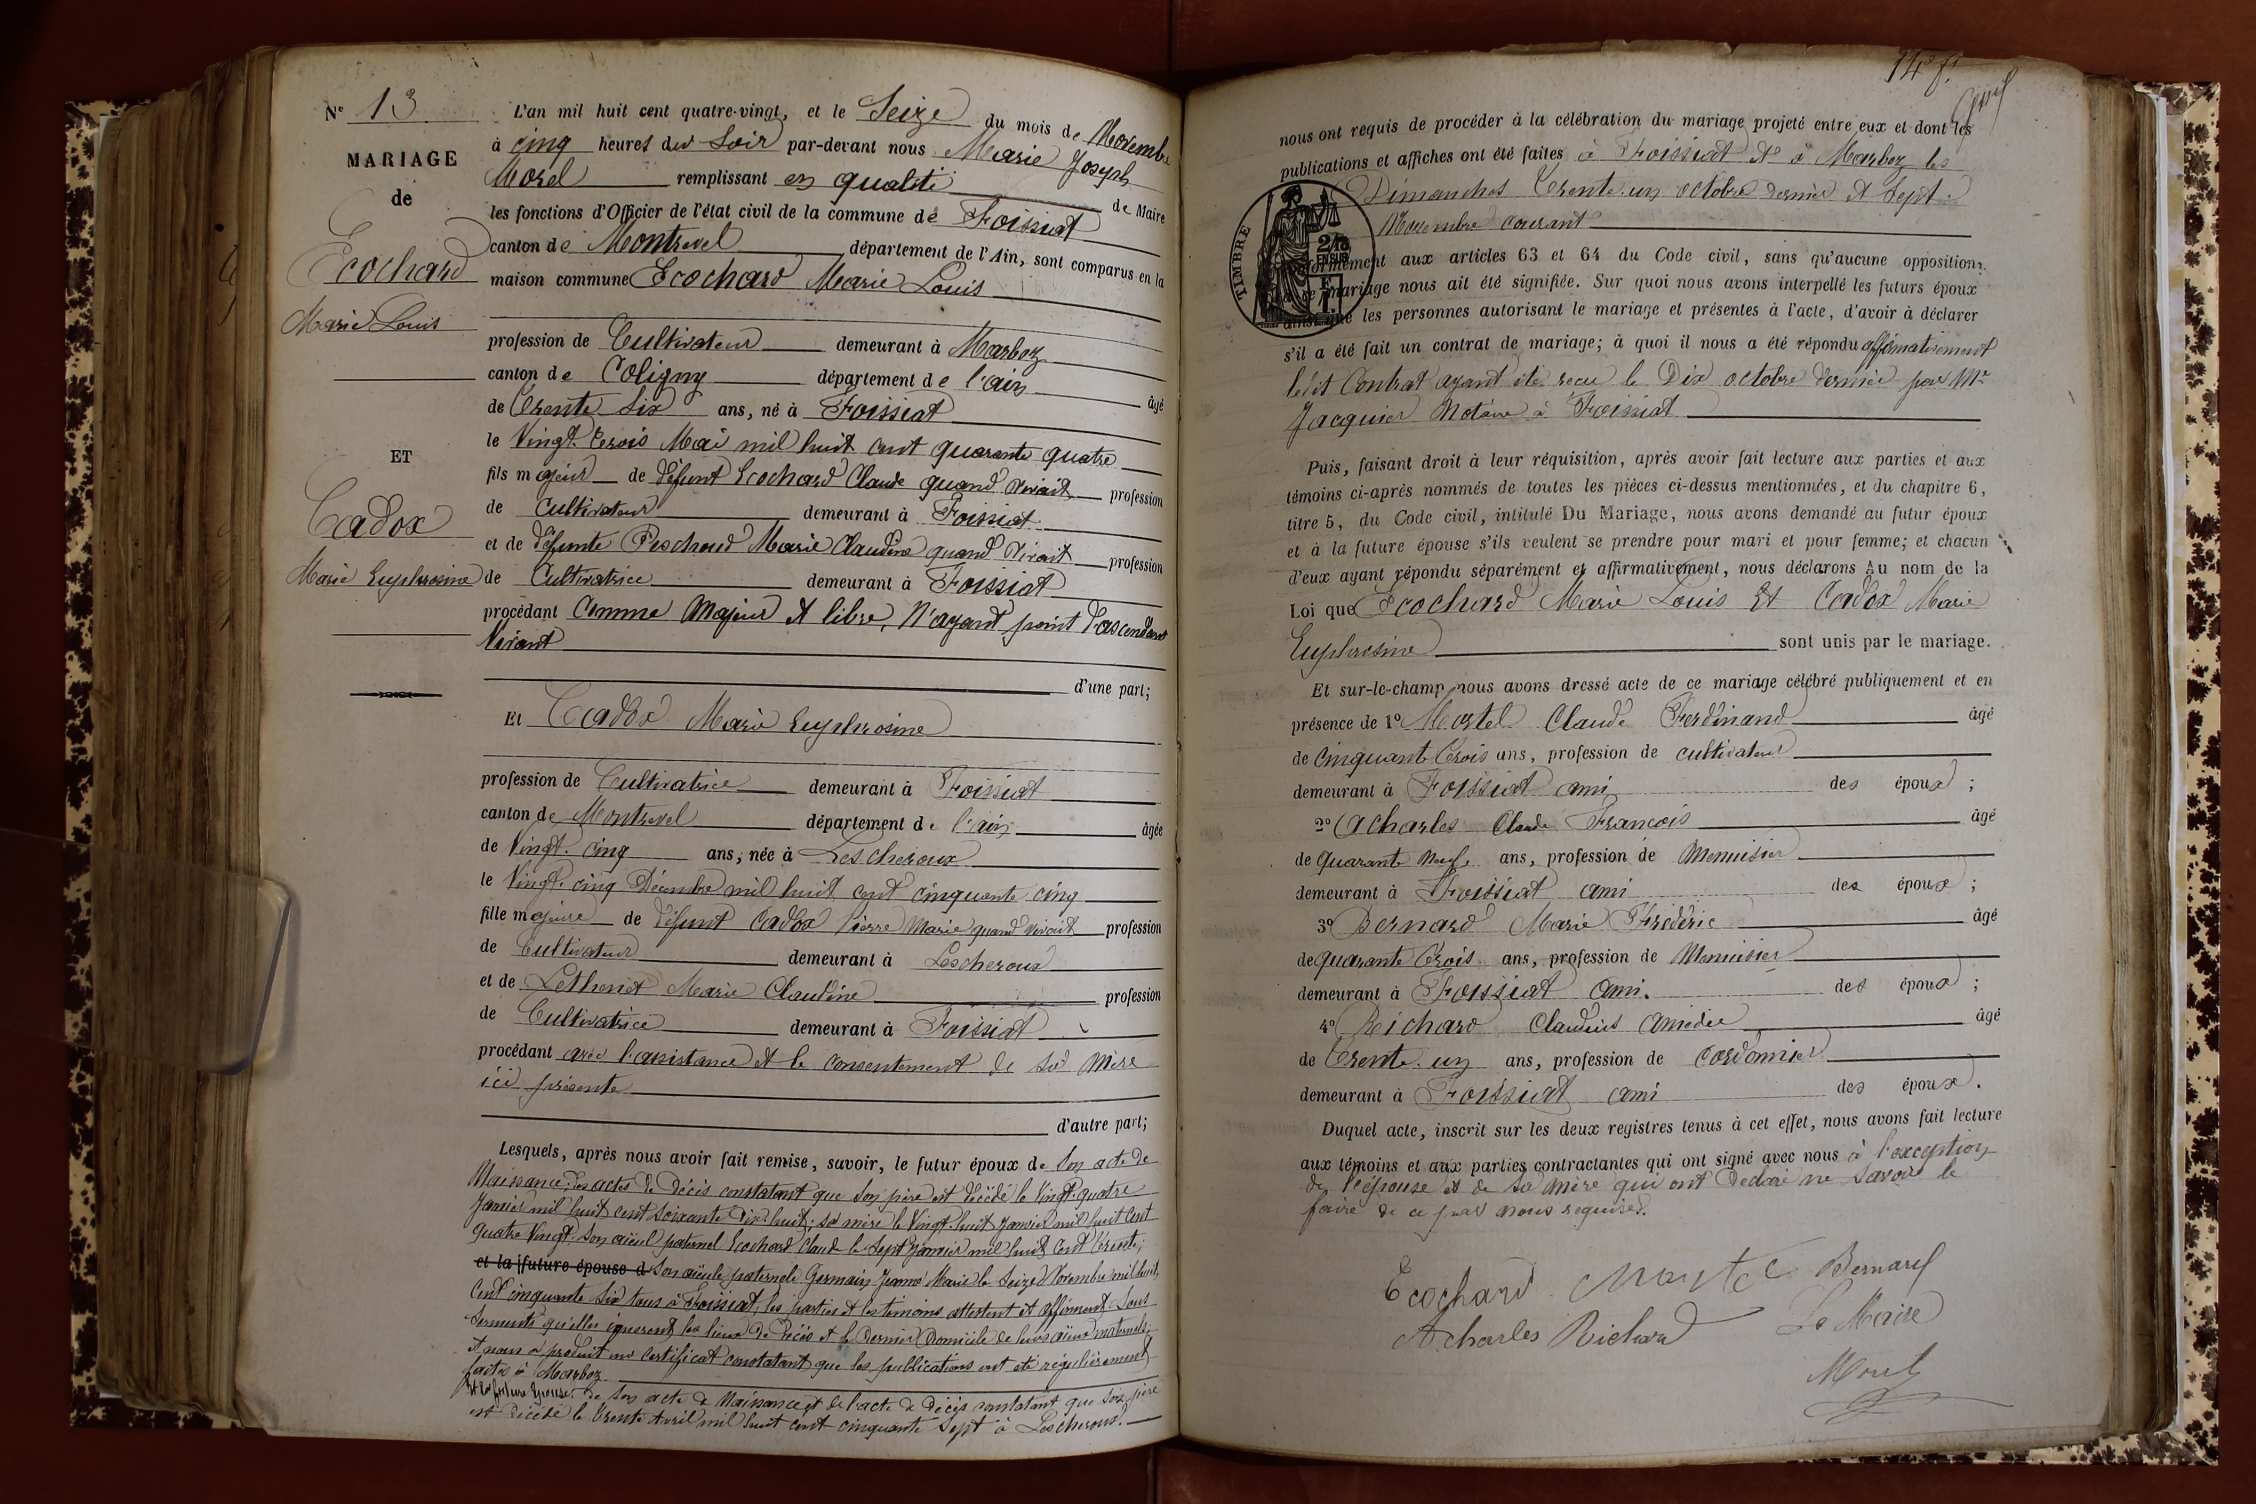 Nº 13
MARIAGE
de
Ecochard
Marie Louis
ET
Cadox
Marie Euphrosine
L'an mil huit cent quatre-vingt, et le Seize du mois de Novembre
à cinq heures du Soir par-devant nous Marie Joseph
Morel remplissant en qualité de Maire
les fonctions d'Officier de l'état civil de la commune de Foissiat
canton de Montrevel département de l'Ain, sont comparus en la
maison commune Ecochard Marie Louis
profession de Cultivateur demeurant à Marboz
canton de Coligny département de l'ain âgé
de Trente Six ans, né à Foissiat
le Vingt Trois Mai mil huit cent quarante quatre
fils majeur de défunt Ecochard Claude quand vivait profession
de Cultivateur demeurant à Foissiat
et de défunte Peschoud Marie Claudine quand vivait profession
de Cultivatrice demeurant à Foissiat
procédant Comme Majeur et libre, N'ayant point d'ascendant
Vivant
d'une part;
Et Cadox Marie Euphrosine
profession de Cultivatrice demeurant à Foissiat
canton de Montrevel département de l'ain âgée
de Vingt-cinq ans, née à Lescheroux
le Vingt-cinq Décembre mil huit cent cinquante cinq
fille majeure de défunt Cadox Pierre Marie quand vivait profession
de Cultivateur demeurant à Lescheroux
et de Lethenet Marie Claudine profession
de Cultivatrice demeurant à Foissiat
procédant avec l'assistance et le consentement de sa mère
ici présente
d'autre part;
Lesquels, après nous avoir fait remise, savoir, le futur époux de son acte de
Naissance; les actes de Décès constatant que son père est décédé le Vingt-quatre
Janvier mil huit cent soixante dix-huit; sa mère le Vingt-huit Janvier mil huit cent
quatre Vingt; son aïeul paternel Ecochard Claude le Sept Janvier mil huit cent trente;
et la future épouse d son aïeule paternelle Germain Jeanne Marie le Seize Novembre mil huit
cent cinquante six tous à Foissiat, les parties et les témoins attestent et affirment sous
serments qu'elles ignorent les lieux de décès et le dernier domicile de leurs aïeux maternels;
et nous a produit un certificat constatant que les publications ont été régulièrement
faites à Marboz
Et la future épouse: de son acte de Naissance et de l'acte de décès constatant que son père
est décédé le trente Avril mil huit cent cinquante sept à Lescheroux.
nous ont requis de procéder à la célébration du mariage projeté entre eux et dont les
publications et affiches ont été faites à Foissiat et à Marboz les
Dimanches Trente-un octobre dernier et Sept
Novembre courant
TIMBRE
conformément aux articles 63 et 64 du Code civil, sans qu'aucune opposition
à ce mariage nous ait été signifiée. Sur quoi nous avons interpellé les futurs époux
ainsi que les personnes autorisant le mariage et présentes à l'acte, d'avoir à déclarer
s'il a été fait un contrat de mariage; à quoi il nous a été répondu affirmativement
ledit Contrat ayant été reçu le Dix octobre dernier par Mr
Jacquier Notaire à Foissiat
Puis, faisant droit à leur réquisition, après avoir fait lecture aux parties et aux
témoins ci-après nommés de toutes les pièces ci-dessus mentionnées, et du chapitre 6,
titre 5, du Code civil, intitulé Du Mariage, nous avons demandé au futur époux
et à la future épouse s'ils veulent se prendre pour mari et pour femme; et chacun
d'eux ayant répondu séparément et affirmativement, nous déclarons au nom de la
Loi que Ecochard Marie Louis Et Cadox Marie
Euphrosine sont unis par le mariage.
Et sur-le-champ nous avons dressé acte de ce mariage célébré publiquement et en
présence de 1º Mortel Claude Ferdinand âgé
de Cinquante Trois ans, profession de cultivateur
demeurant à Foissiat ami des époux ;
2º Acharles Claude François âgé
de quarante neuf ans, profession de Menuisier
demeurant à Foissiat ami des époux ;
3º Bernard Marie Frédéric âgé
de quarante Trois ans, profession de Menuisier
demeurant à Foissiat ami. des époux ;
4º Richard Claudius Amédée âgé
de Trente-un ans, profession de Cordonnier
demeurant à Foissiat ami des époux.
Duquel acte, inscrit sur les deux registres tenus à cet effet, nous avons fait lecture
aux témoins et aux parties contractantes qui ont signé avec nous à l'exception
de l'épouse et de sa mère qui ont déclaré ne savoir le
faire de ce par nous requises.
Ecochard Mortel Bernard
Acharles Richard Le Maire
Morel